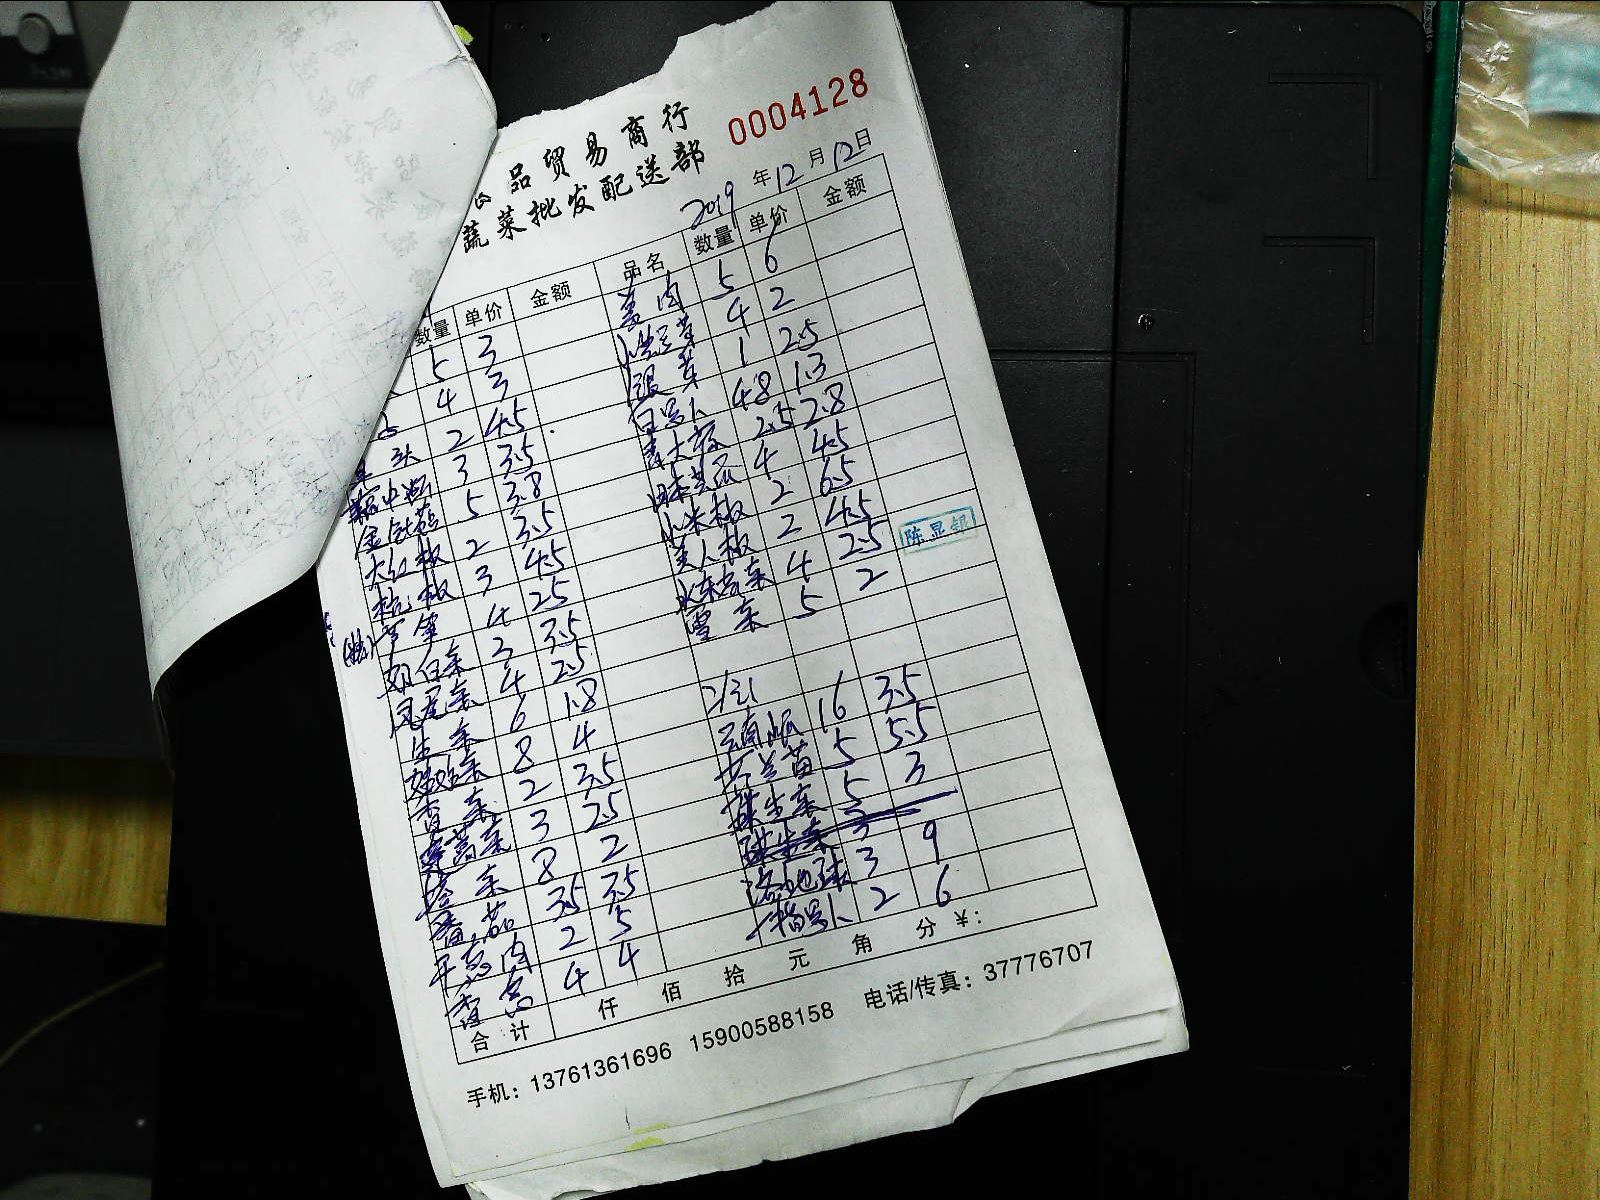 品贸易商行
蔬菜批发配送部
0004128
2019 年 12 月 12 日
数量 单价 金额
5 3
4 3
头 2 4.5
3 3.5
金针菇 5 3.8
大红椒 2 3.5
杭椒 3 4.5
芦笋 4 2.5
奶白菜 3 3.5
凤尾菜 4 2.5
生菜 6 1.8
8 4
香菜 2 3.5
茼蒿菜 3 2.5
塔菜 8 2
番茄 35 3.5
平菇肉 2 5
香菇 4 4
品名 数量 单价 金额
姜肉 5 6
4 2
银芽 1 2.5
白萝卜 48 1.3
青大蒜 2.5 2.8
日本黄瓜 4 4.5
小米椒 2 6.5
美人椒 2 4.5
4 2.5
雪菜 5 2
陈显银
16 3.5
芥兰苗 5 5.5
球生菜 5 3
球生菜 3
3 9
2 6
合计 仟 佰 拾 元 角 分 ¥:
手机: 13761361696 15900588158 电话/传真: 37776707